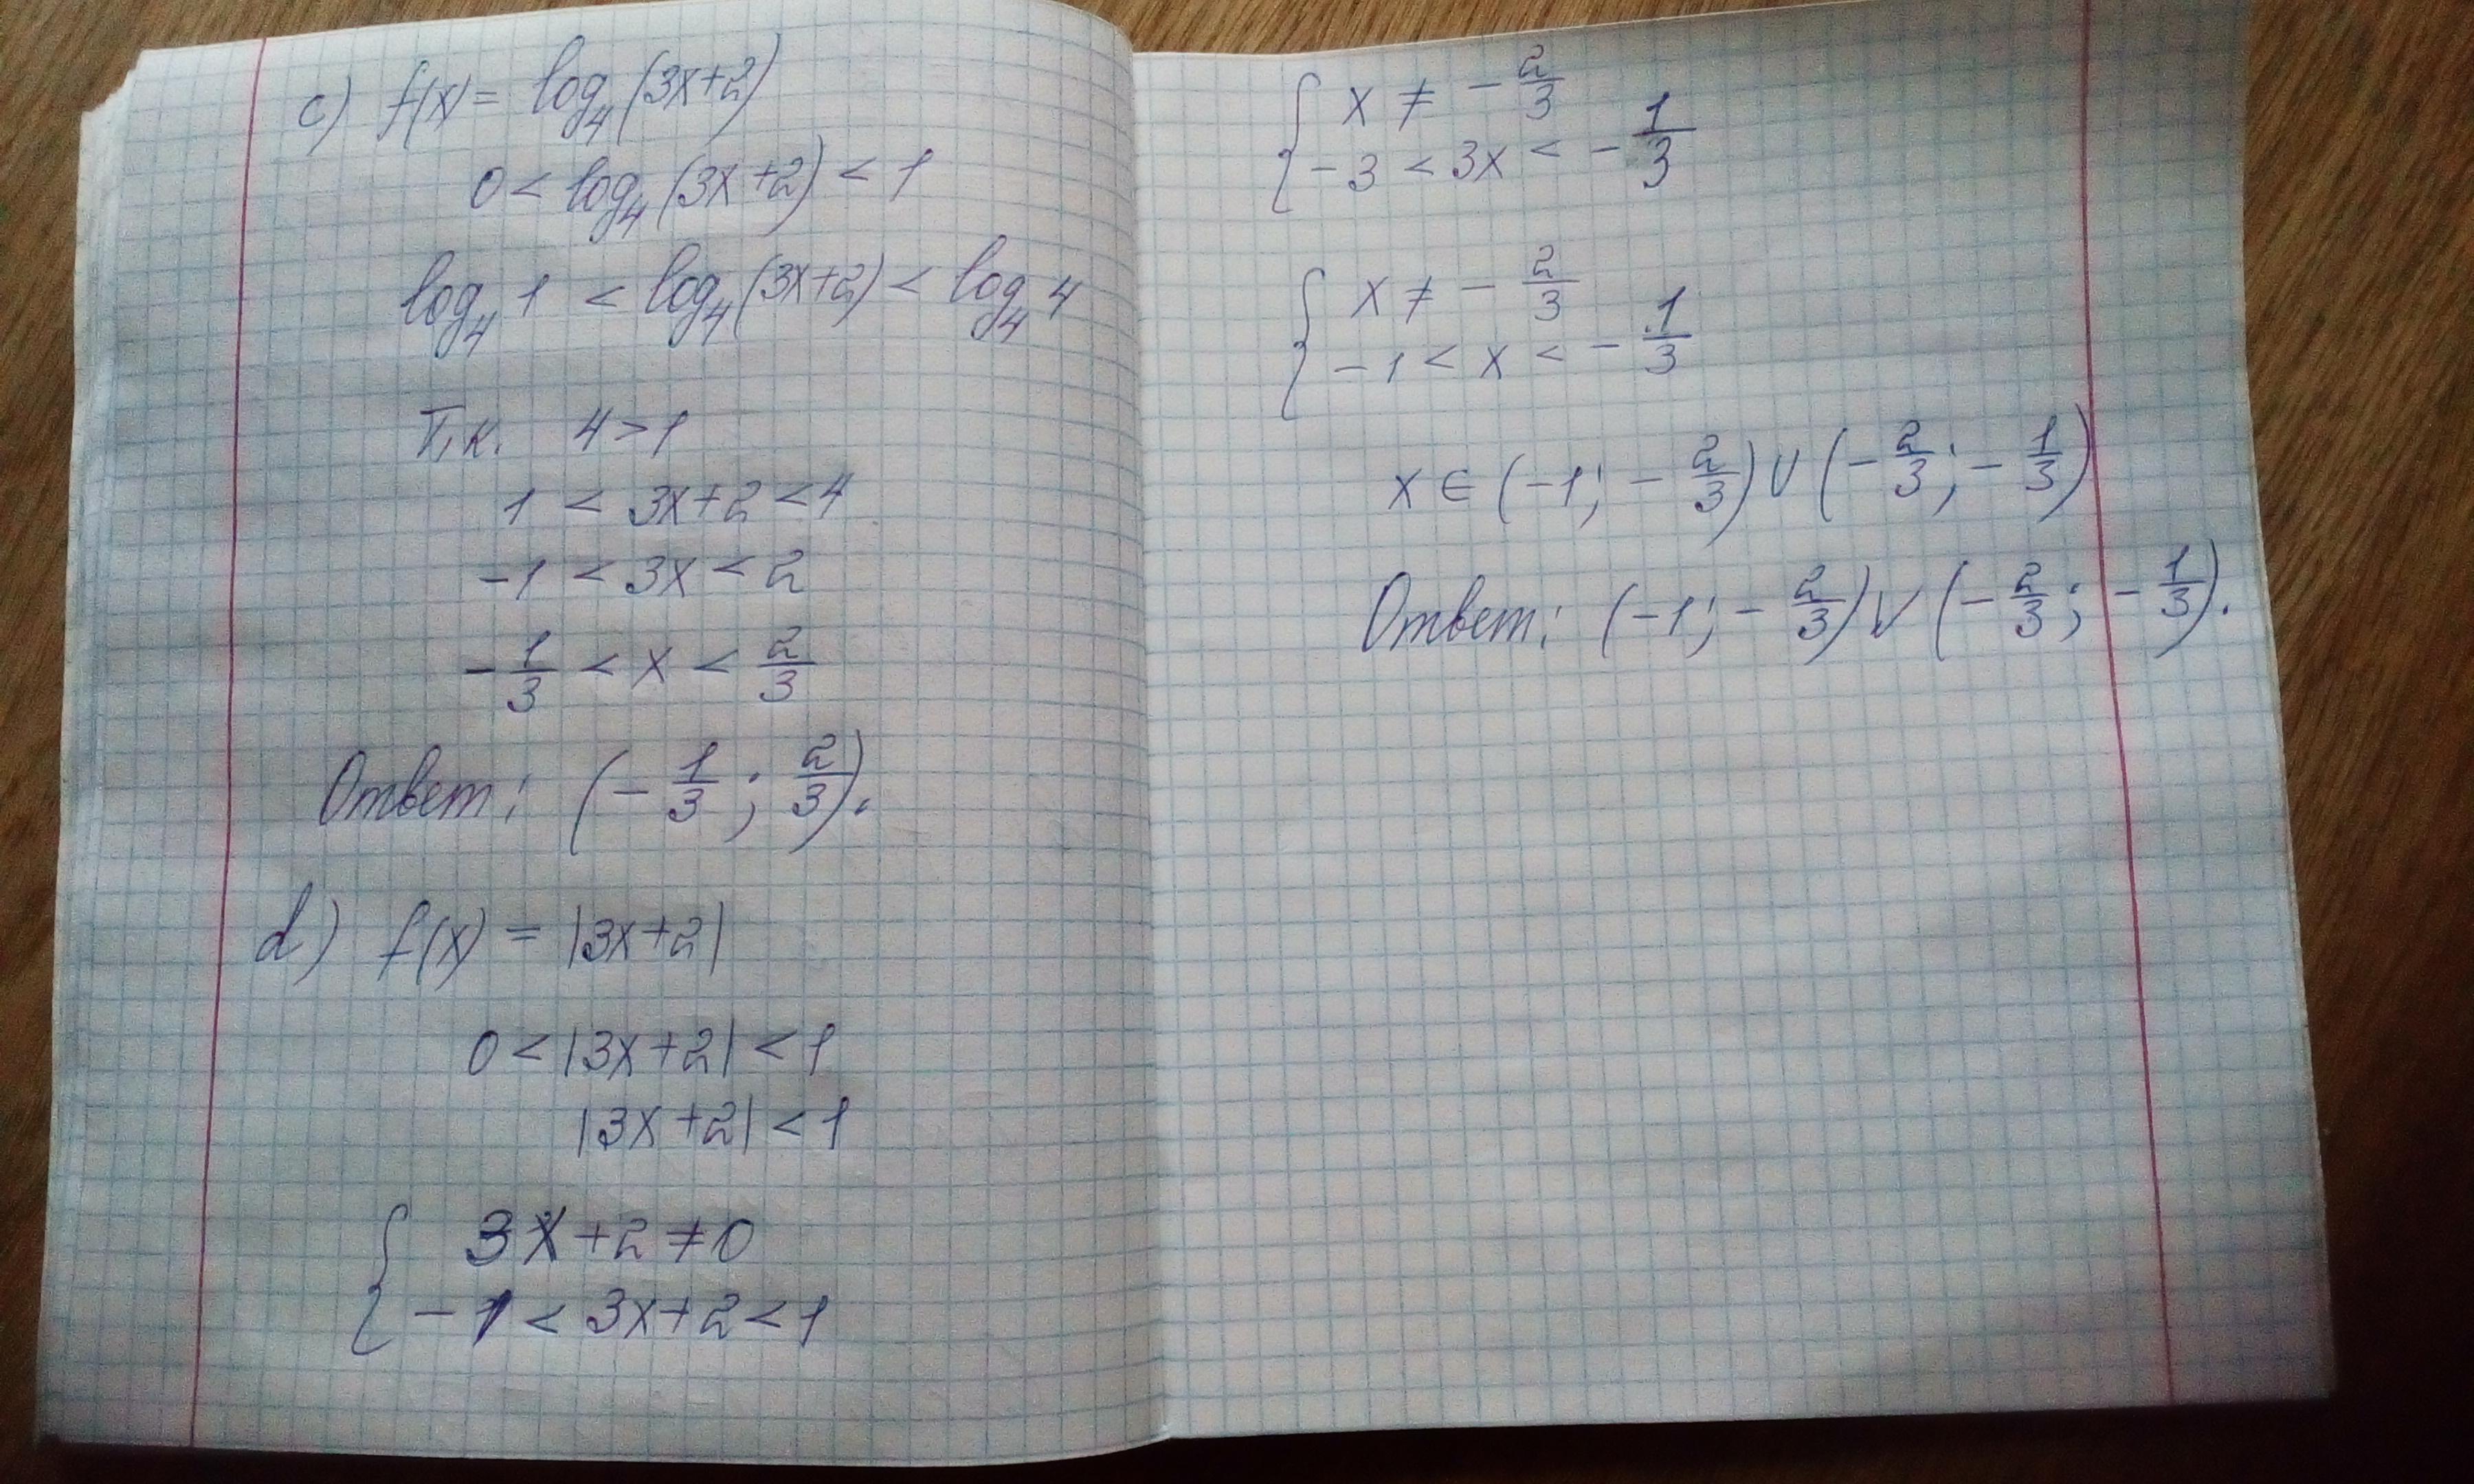 c) f(x) = log₄(3x+2)
0 < log₄(3x+2) < 1
log₄ 1 < log₄(3x+2) < log₄ 4
Т.к. 4 > 1
1 < 3x+2 < 4
-1 < 3x < 2
-1/3 < x < 2/3
Ответ: (-1/3; 2/3).
d) f(x) = |3x+2|
0 < |3x+2| < 1
|3x+2| < 1
{ 3x+2 ≠ 0
-1 < 3x+2 < 1
{ x ≠ -2/3
-3 < 3x < -1/3
{ x ≠ -2/3
-1 < x < -1/3
x ∈ (-1; -2/3) ∪ (-2/3; -1/3)
Ответ: (-1; -2/3) ∪ (-2/3; -1/3).